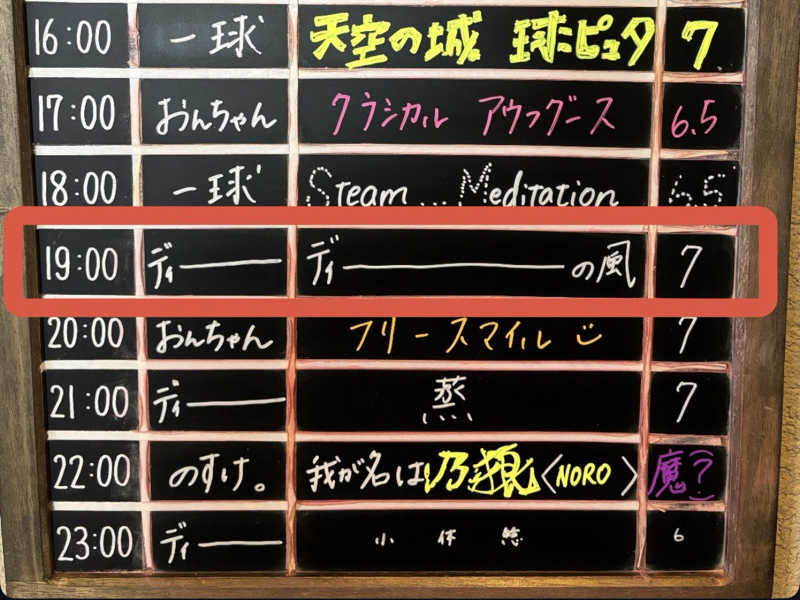 16:00 一球 天空の城 球ピュタ 7
17:00 おんちゃん クラシカル アウフグース 6.5
18:00 一球 Steam...Meditation 6.5
19:00 ディー ディーーーーの風 7
20:00 おんちゃん フリースマイル 7
21:00 ディー 蒸 7
22:00 のすけ。 我が名は乃親〈NORO〉 魔?
23:00 ディー 小休憩 6